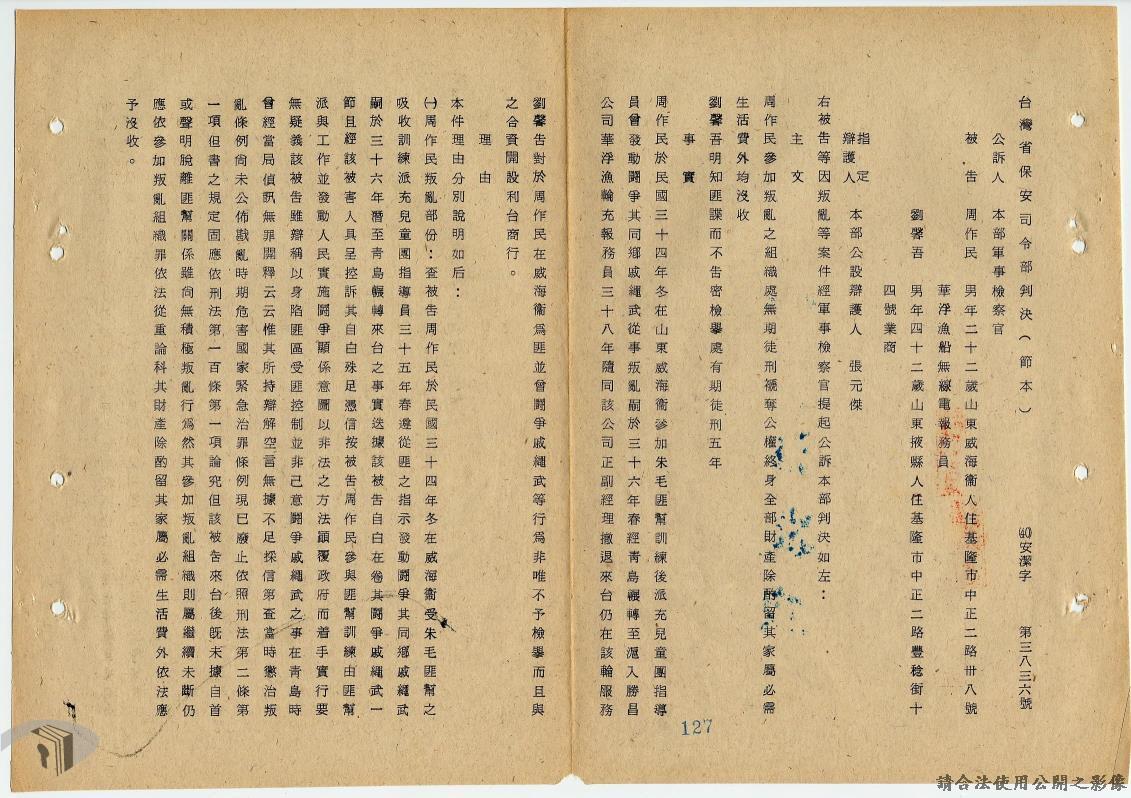 台灣省保安司令部判決（節本） ㈣安潔字 第三八三六號
公訴人 本部軍事檢察官
被告 周作民 男年二十二歲山東威海衛人住基隆市中正二路卅八號
華浮漁船無線電報務員
劉馨吾 男年四十二歲山東掖縣人住基隆市中正二路豐稔街十
四號業商
指定辯護人 本部公設辯護人 張元傑
右被告等因叛亂等案件經軍事檢察官提起公訴本部判決如左：
主文
周作民參加叛亂之組織處無期徒刑褫奪公權終身全部財產除酌留其家屬必需
生活費外均沒收
劉馨吾明知匪諜而不告密檢舉處有期徒刑五年
事實
周作民於民國三十四年冬在山東威海衛參加朱毛匪幫訓練後派充兒童團指導
員曾發動鬪爭其同鄉戚繩武從事叛亂嗣於三十六年春經靑島輾轉至滬入勝昌
公司華浮漁輪充報務員三十八年隨同該公司正副經理撤退來台仍在該輪服務
劉馨告對於周作民在威海衛爲匪並曾鬪爭戚繩武等行爲非唯不予檢舉而且與
之合資開設利台商行。
理由
本件理由分別說明如后：
㈠周作民叛亂部份：查被告周作民於民國三十四年冬在威海衛受朱毛匪幫之
吸收訓練派充兒童團指導員三十五年春遵從匪之指示發動鬪爭其同鄉戚繩武
嗣於三十六年潛至靑島輾轉來台之事實迭據該被告自白在卷其鬪爭戚繩武一
節且經該被害人具呈控訴其自白殊足憑信按被告周作民參與匪幫訓練由匪幫
派與工作並發動人民實施鬪爭顯係意圖以非法之方法顚覆政府而着手實行要
無疑義該被告雖辯稱以身陷匪區受匪控制並非己意鬪爭戚繩武之事在靑島時
曾經當局偵訊無罪開釋云云惟其所持辯解空言無據不足採信第查當時懲治叛
亂條例尙未公佈戡亂時期危害國家緊急治罪條例現已廢止依照刑法第二條第
一項但書之規定固應依刑法第一百條第一項論究但該被告來台後旣未據自首
或聲明脫離匪幫關係雖尙無積極叛亂行爲然其參加叛亂組織則屬繼續未斷仍
應依參加叛亂組織罪依法從重論科其財產除酌留其家屬必需生活費外依法應
予沒收。
127
請合法使用公開之影像